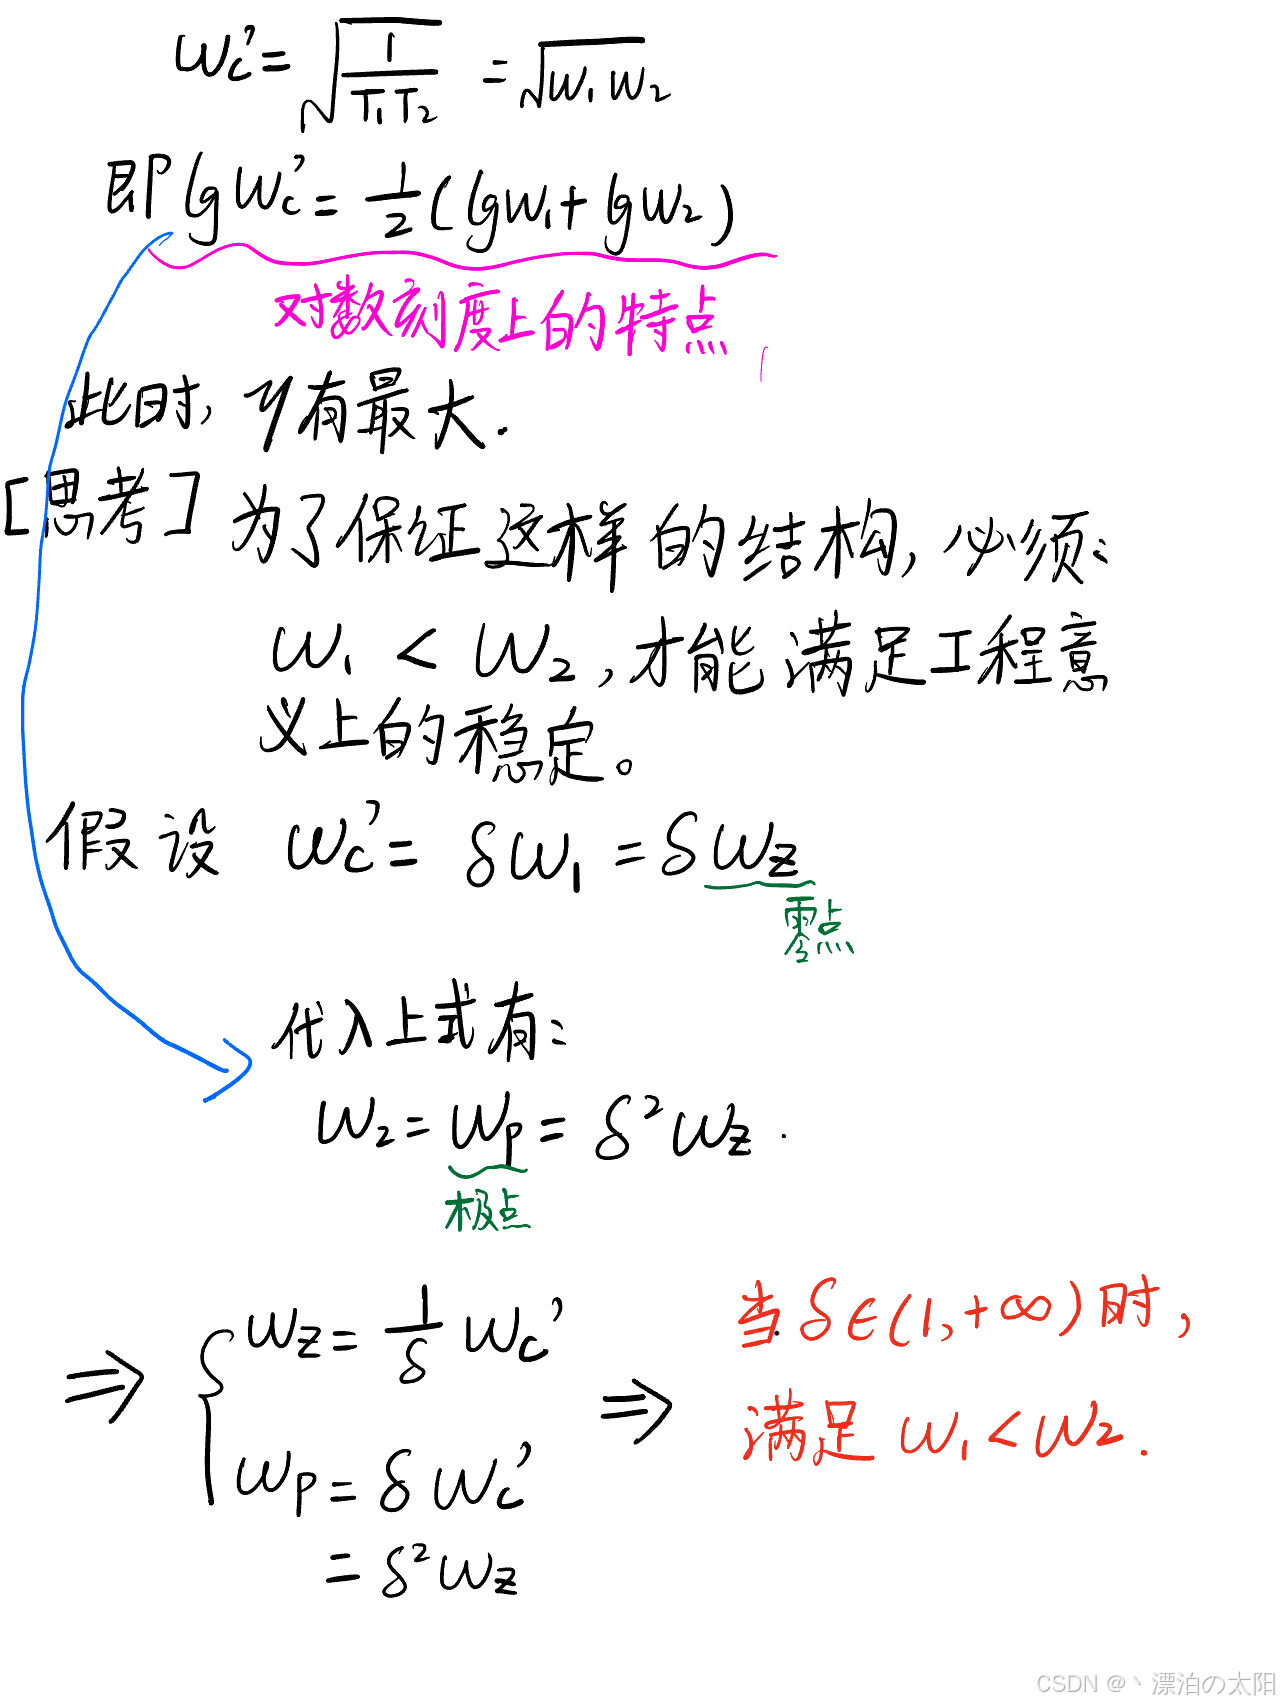 ωc' = √(1/(T₁T₂)) = √(ω₁ω₂)
即 lgωc' = 1/2 (lgω₁ + lgω₂)
对数刻度上的特点
此时, γ有最大.
[思考] 为了保证这样的结构, 必须:
ω₁ < ω₂, 才能满足工程意
义上的稳定。
假设 ωc' = δω₁ = δωz
零点
代入上式有:
ω₂ = ωp = δ²ωz.
极点
⇒ { ωz = 1/δ ωc'
ωp = δωc'
= δ²ωz
⇒ 当δ∈(1,+∞)时,
满足 ω₁<ω₂.
CSDN @丶漂泊の太阳